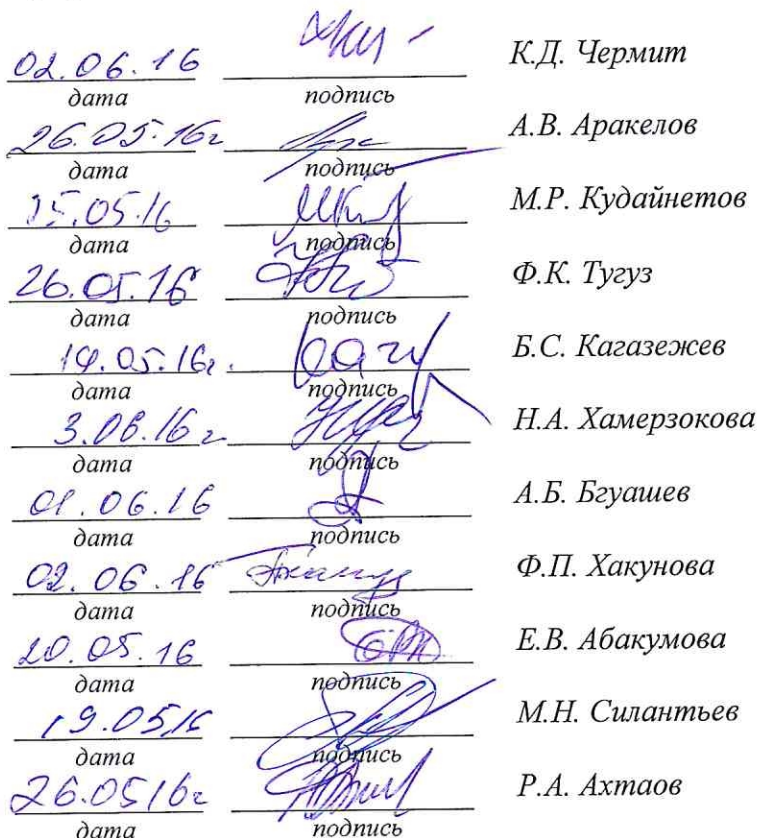 02.06.16 К.Д. Чермит
дата подпись
26.05.16г А.В. Аракелов
дата подпись
25.05.16 М.Р. Кудайнетов
дата подпись
26.05.16 Ф.К. Тугуз
дата подпись
19.05.16г. Б.С. Кагазежев
дата подпись
3.06.16г Н.А. Хамерзокова
дата подпись
01.06.16 А.Б. Бгуашев
дата подпись
02.06.16 Ф.П. Хакунова
дата подпись
20.05.16 Е.В. Абакумова
дата подпись
19.05.16 М.Н. Силантьев
дата подпись
26.05.16г Р.А. Ахтаов
дата подпись